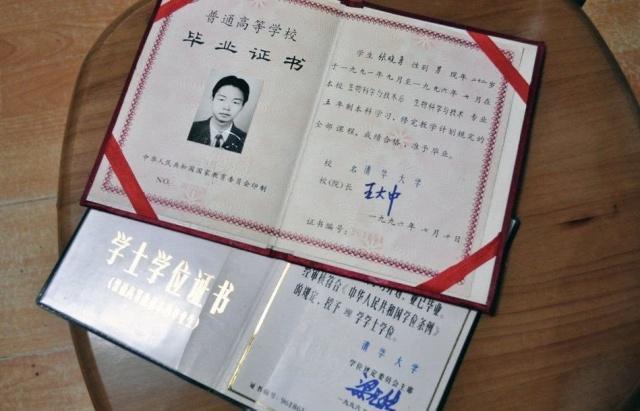 普通高等学校
毕业证书
中华人民共和国国家教育委员会印制
NO.
学生 张晓勇 性别 男 现年 二十三 岁
于一九九一年九月至一九九六年七月在
本校 生物科学与技术系 生物科学与技术 专业
五年制本科学习,修完教学计划规定的
全部课程,成绩合格,准予毕业。
校 名 清华大学
校(院)长 王大中
证书编号:
一九九六年七月十日
学士学位证书
业已毕业,
经审核符合《中华人民共和国学位条例》
的规定,授予 理 学学士学位。
清华大学
学位评定委员会主席
一九九六年
证书编号